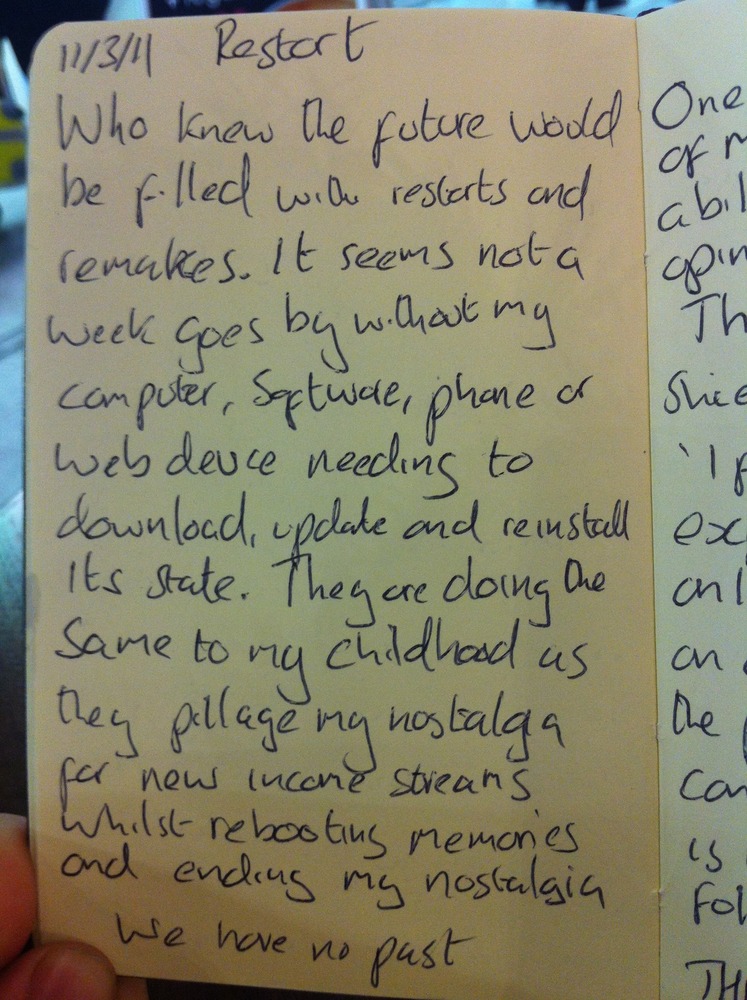 11/3/11 Restart
Who knew the future would
be filled with restarts and
remakes. It seems not a
week goes by without my
computer, Software, phone or
web device needing to
download, update and reinstall
its state. They are doing the
Same to my childhood as
they pillage my nostalgia
for new income streams
whilst rebooting memories
and ending my nostalgia
We have no past
One
of
abil
opin
Th
Shie
'I
exc
onl
on
the
Can
is
Fol
TH